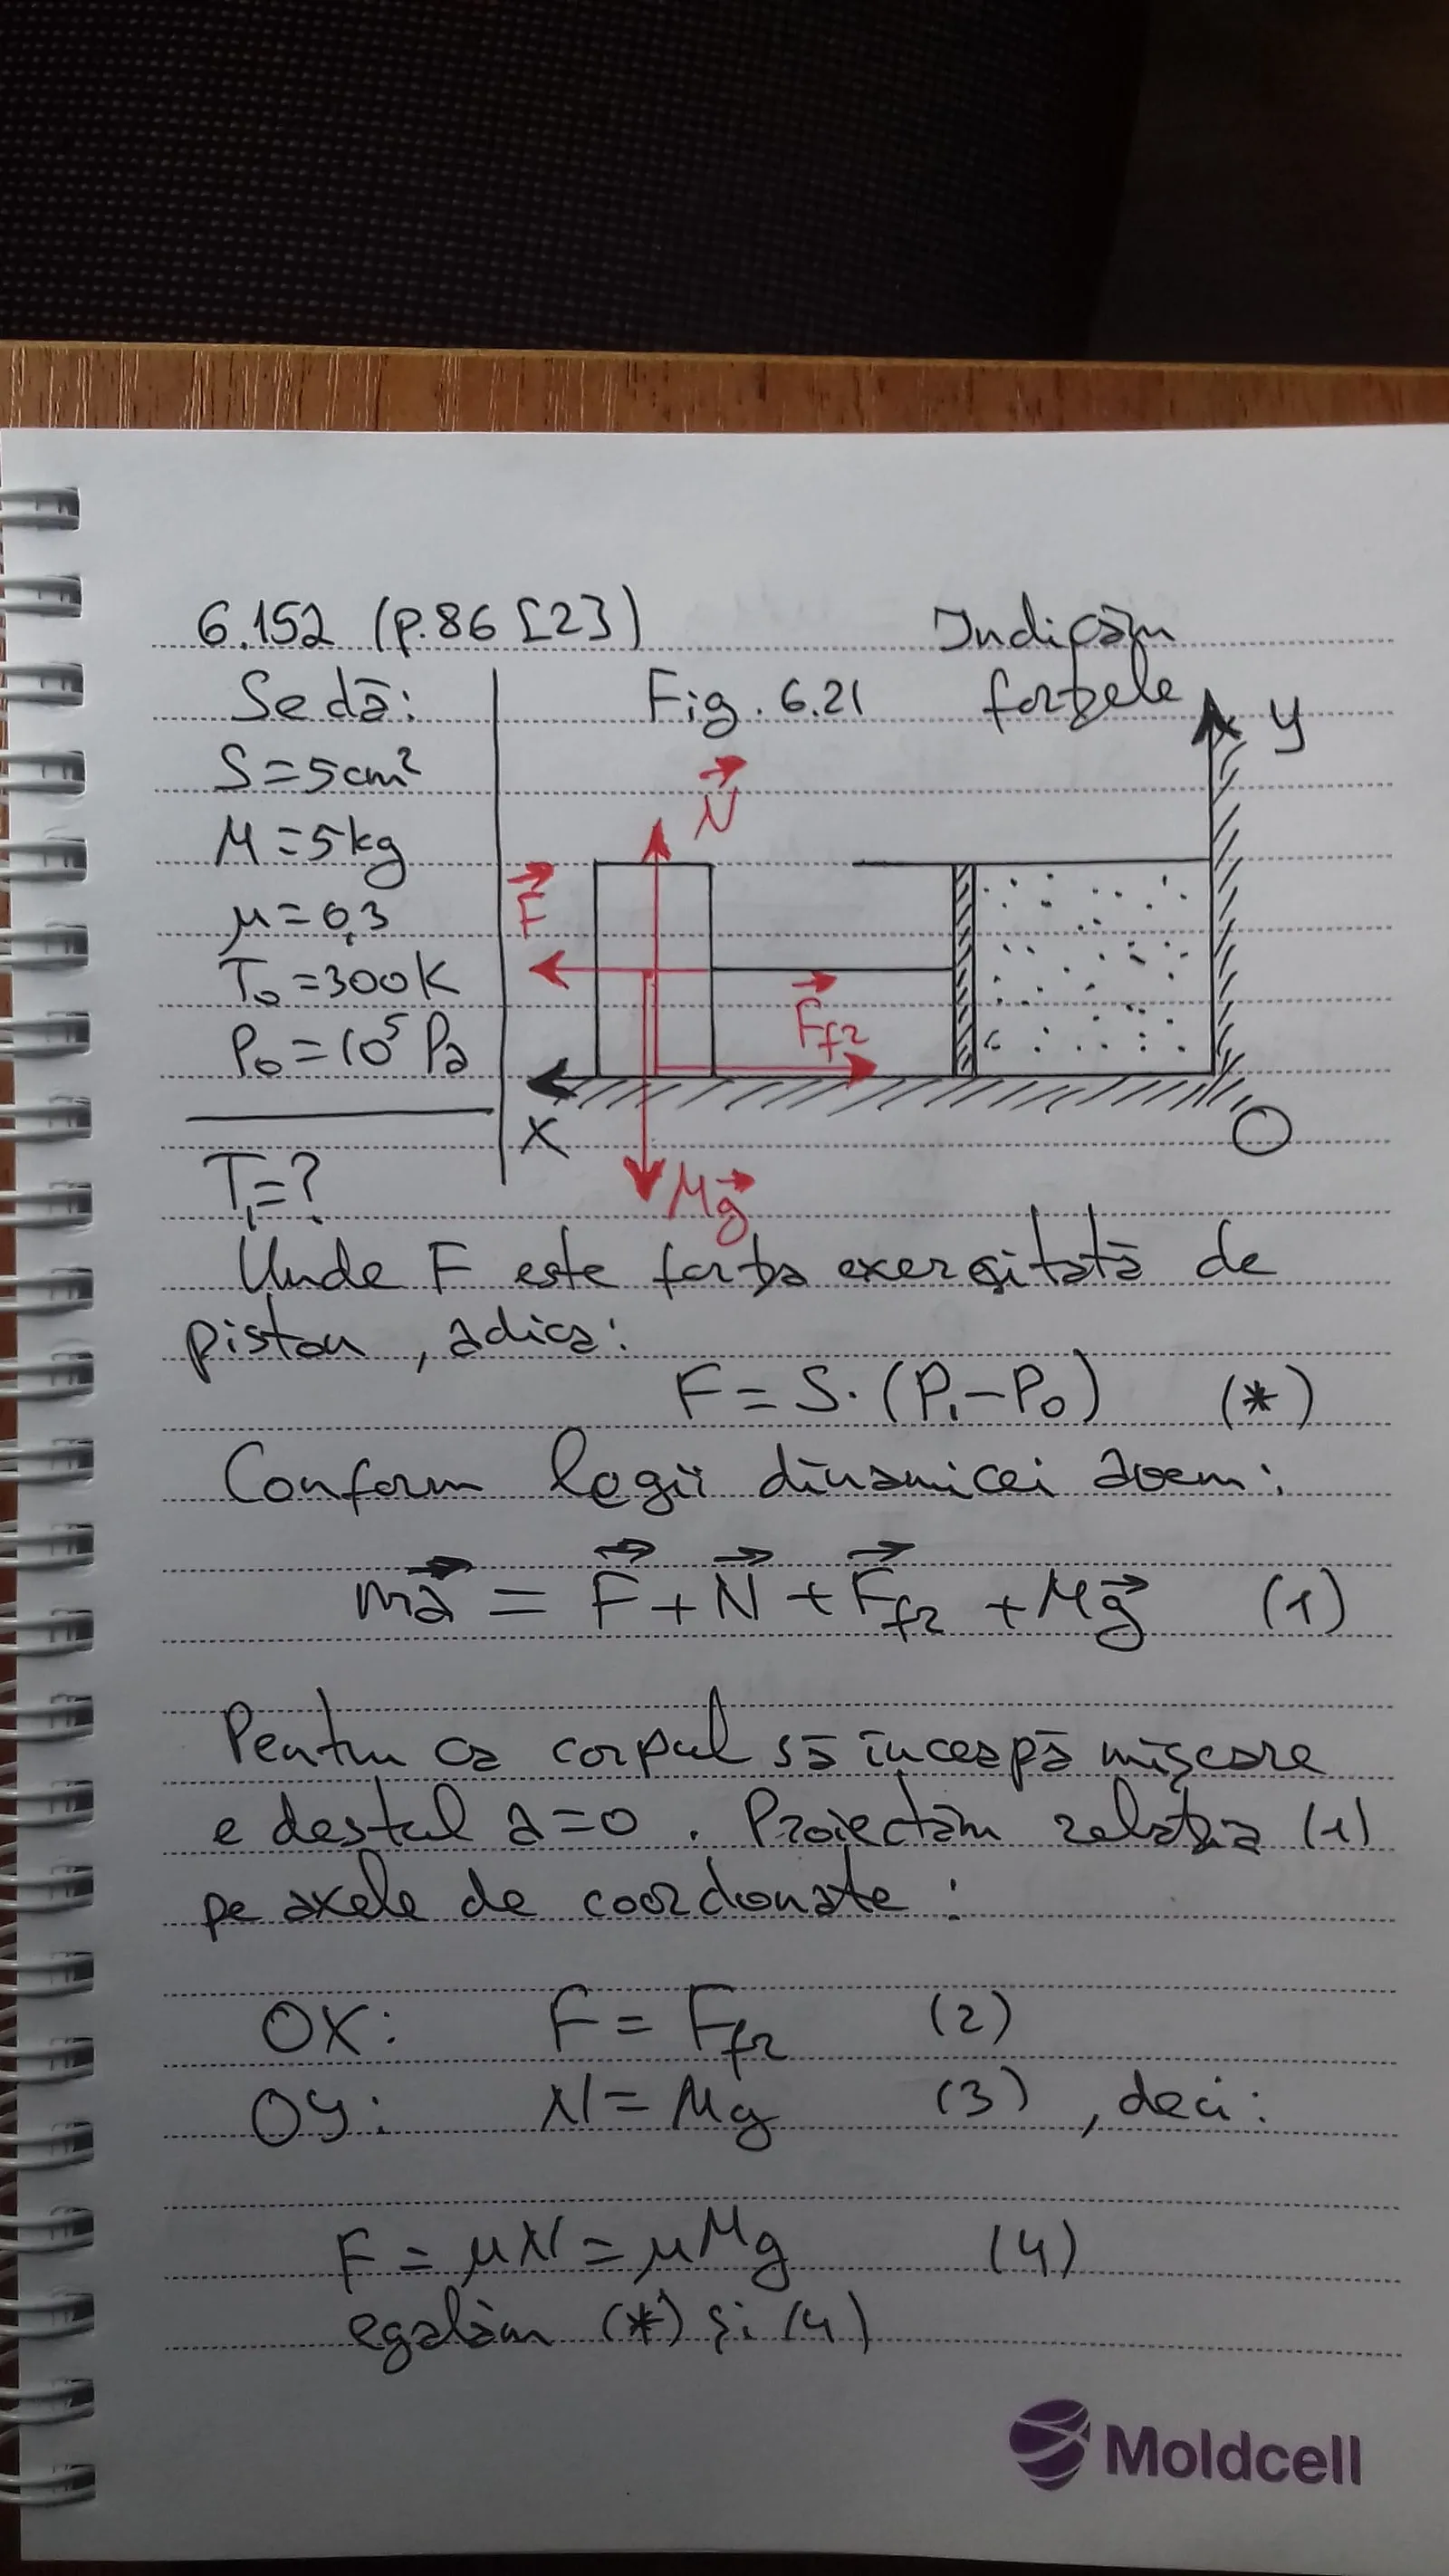 6.152 (p.86 [2])
Indicăm
forțele
Se dă:
Fig. 6.21
S = 5 cm²
M = 5 kg
μ = 0,3
T₀ = 300 K
P₀ = 10⁵ Pa
T₁ = ?
y
N⃗
F⃗
F⃗fr
x
O
Mg⃗
Unde F este forța exercitată de
piston, adica:
F = S · (P₁ – P₀) (*)
Conform legii dinamicei avem:
ma⃗ = F⃗ + N⃗ + F⃗fr + Mg⃗ (1)
Pentru ca corpul să înceapă mișcare
e destul a = 0. Proiectăm relația (1)
pe axele de coordonate:
OX: F = Ffr (2)
OY: N = Mg (3), deci:
F = μN = μMg (4)
egalăm (*) și (4)
Moldcell